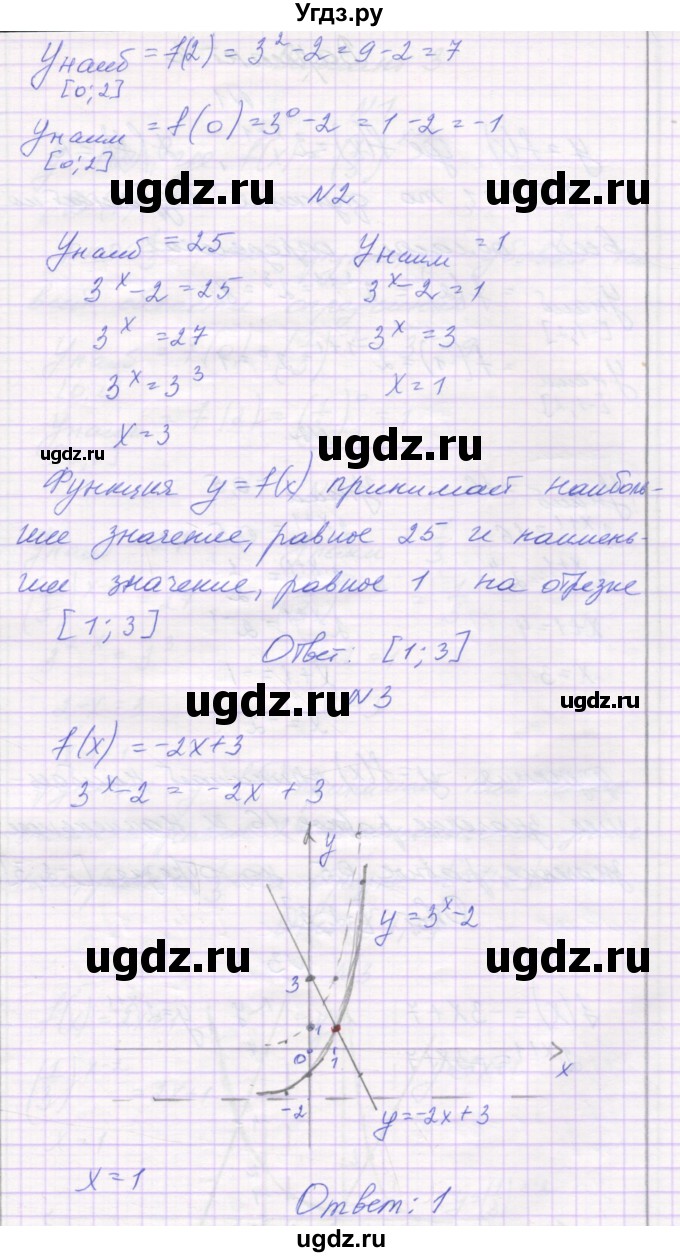 Угдз.ру
Yнаиб = f(2) = 3² - 2 = 9 - 2 = 7
[0;2]
Yнаим = f(0) = 3⁰ - 2 = 1 - 2 = -1
[0;2]
ugdz.ru ugdz.ru
N2
Yнаиб = 25 Yнаим = 1
3ˣ - 2 = 25 3ˣ - 2 = 1
3ˣ = 27 3ˣ = 3
3ˣ = 3³ x = 1
x = 3
ugdz.ru ugdz.ru
Функция y = f(x) принимает наиболь-
шее значение, равное 25 и наимень-
шее значение, равное 1 на отрезке
[1; 3]
Ответ: [1; 3]
ugdz.ru ugdz.ru
N3
f(x) = -2x + 3
3ˣ - 2 = -2x + 3
y
y = 3ˣ - 2
ugdz.ru ugdz.ru
3
1
0 1 x
-2
y = -2x + 3
x = 1
Ответ: 1
ugdz.ru